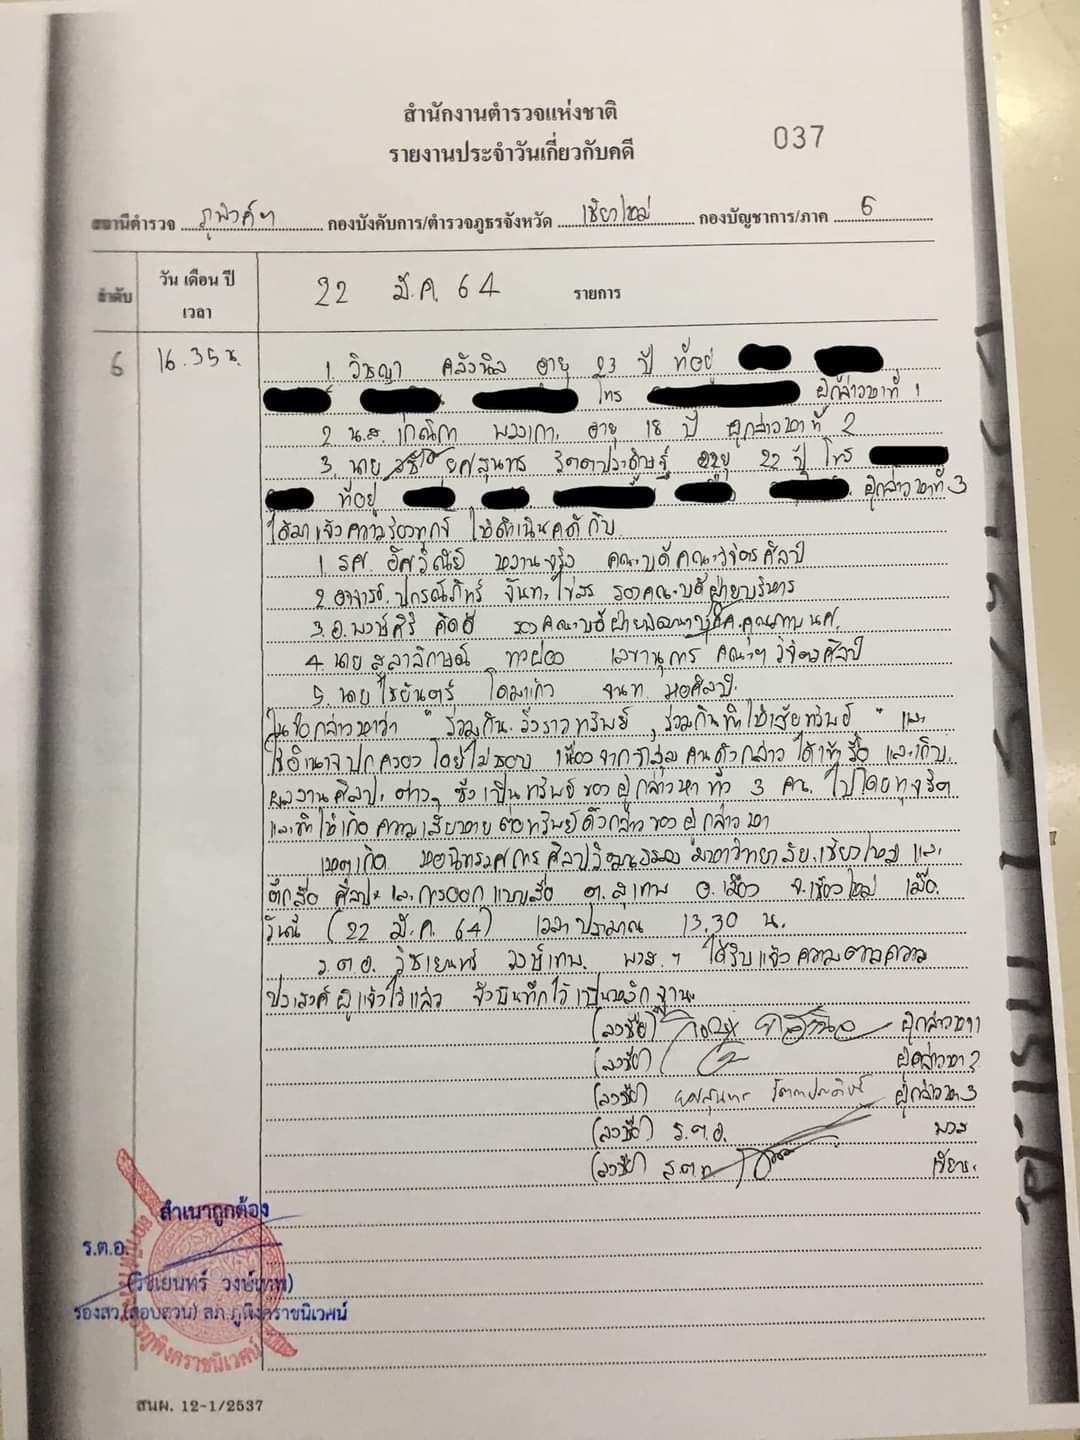 สำนักงานตำรวจแห่งชาติ
รายงานประจำวันเกี่ยวกับคดี
037
สถานีตำรวจ ภูพิงค์ฯ กองบังคับการ/ตำรวจภูธรจังหวัด เชียงใหม่ กองบัญชาการ/ภาค 5
ลำดับ
วัน เดือน ปี
เวลา
22 มี.ค. 64 รายการ
6 16.35 น. 1. วิชญา คลังนิล อายุ 23 ปี ที่อยู่
โทร ผู้กล่าวหาที่ 1
2 น.ส. เก่ณิกา พวงเกา อายุ 18 ปี ผู้กล่าวหาที่ 2
3. นาย ยศสุนทร รัตตประดิษฐ์ อายุ 22 ปี โทร
ที่อยู่ ผู้กล่าวหาที่ 3
ได้มาแจ้งความร้องทุกข์ ให้ดำเนินคดีกับ
1. รศ. อัศวิณีย์ หวานจริง คณะบดีคณะวิจิตรศิลป์
2. อาจารย์ ปกรณ์ภัทร์ จันทะไข่สร รองคณะบดีฝ่ายบริหาร
3. อ. พงษ์ศิริ คิดดี รองคณะบดีฝ่ายพัฒนา คุณภาพ นศ.
4. นาย สุลาลักษณ์ ขาวผ่อง เลขานุการ คณะฯ วิจิตรศิลป์
5. นาย ไชยันตร์ โดมแก้ว จนท. หอศิลป์
ในข้อกล่าวหาว่า " ร่วมกันวิ่งราวทรัพย์ , ร่วมกันทำให้เสียทรัพย์ " และ
ใช้อำนาจปกครอง โดยไม่ชอบ เนื่องจากกลุ่มคนดังกล่าว ได้เข้ารื้อ และเก็บ
ผลงานศิลปะต่างๆ ซึ่งเป็นทรัพย์ของผู้กล่าวหาทั้ง 3 คน ไปโดยทุจริต
และทำให้เกิดความเสียหายต่อทรัพย์ดังกล่าวของผู้กล่าวหา
เหตุเกิด หอนิทรรศการศิลปวัฒนธรรม มหาวิทยาลัยเชียงใหม่ และ
ตึกสื่อ ศิลปะและการออกแบบสื่อ ต.สุเทพ อ.เมือง จ.เชียงใหม่ เมื่อ
วันนี้ (22 มี.ค. 64) เวลาประมาณ 13.30 น.
ร.ต.อ. วิชเยนทร์ วงษ์เทพ พงส.ฯ ได้รับแจ้งความตามความ
ประสงค์ผู้แจ้งไว้แล้ว จึงบันทึกไว้เป็นหลักฐาน
(ลงชื่อ) ผู้กล่าวหา 1
(ลงชื่อ) ผู้กล่าวหา 2
(ลงชื่อ) ยศสุนทร รัตตประดิษฐ์ ผู้กล่าวหา 3
(ลงชื่อ) ร.ต.อ. พงส
(ลงชื่อ) ร.ต.อ เขียน
สำเนาถูกต้อง
ร.ต.อ.
(วิชเยนทร์ วงษ์เทพ)
รองสว.(สอบสวน) สภ.ภูพิงคราชนิเวศน์
ภูพิงคราชนิเวศน์
สนผ. 12-1/2537